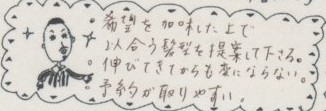 希望を加味した上で
似合う髪型を提案して下さる。
伸びてきてからも変にならない。
予約が取りやすい。